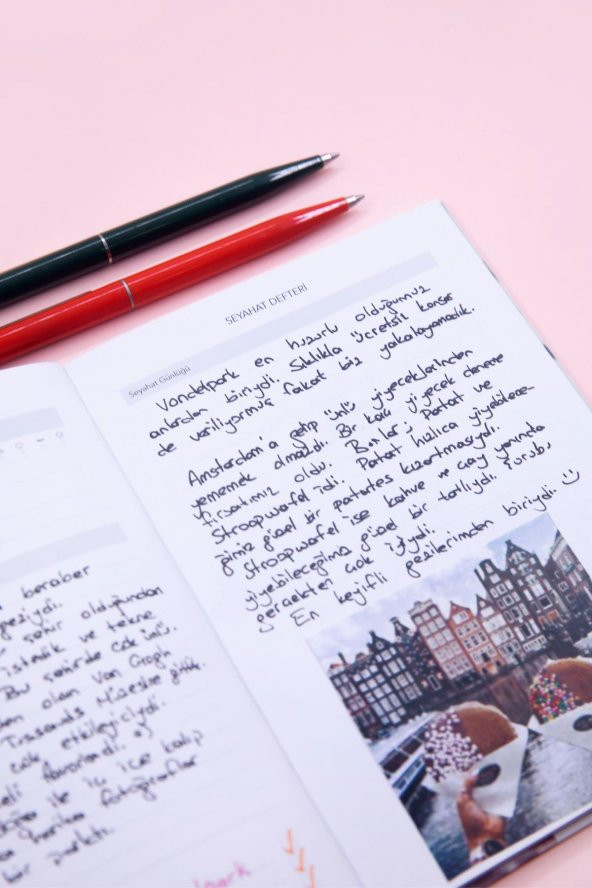 beraber
geziydi.
şehir olduğundan
istedik ve tekne
Bu şehirde çok ünlü
olan Van Gogh
Müzesine gittik.
çok etkileyiciydi.
favorilendi.
ile iç içe kalıp
harika fotoğraflar
bir parktı.
SEYAHAT DEFTERİ
Seyahat Günlüğü
Vondelpark en huzurlu olduğumuz
anlardan biriydi. Sıklıkla ücretsiz konser
de veriliyormuş fakat biz yakalayamadık.
Amsterdam'a gelip ünlü yiyeceklerinden
yememek olmazdı. Bir kaç yiyecek deneme
fırsatımız oldu. Bunlar; Patat ve
Stroopwafel idi. Patat hızlıca yiyebilece-
ğimiz güzel bir patates kızartmasıydı.
Stroopwafel ise kahve ve çay yanında
yiyebileceğimiz güzel bir tatlıydı. Yorubu
gerçekten çok iyiydi.
En keyifli gezilerimden biriydi. :)